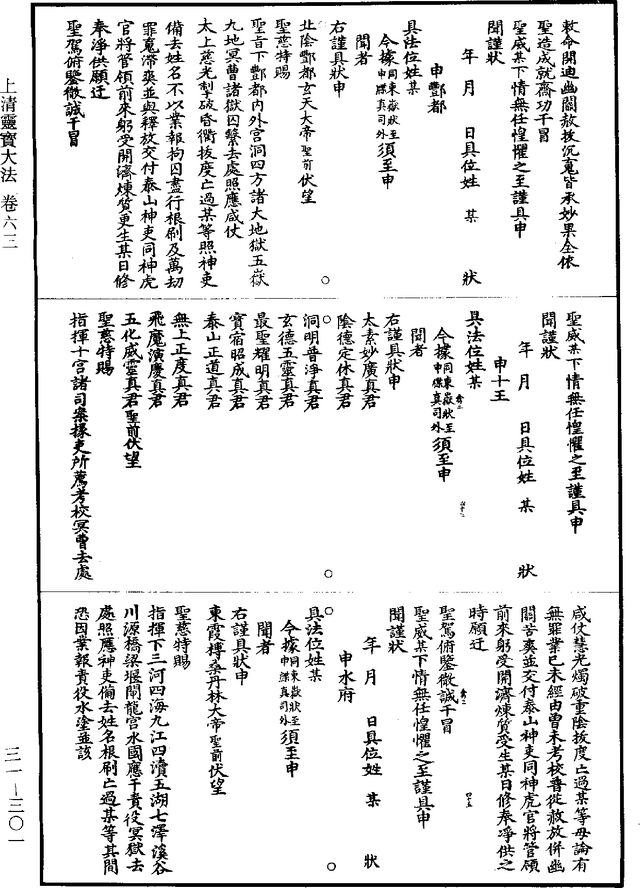 敕命開廸幽關赦拔沉䰟皆承妙果全依
聖造成就齋功干冒
聖威某下情無任惶懼之至謹具申
聞謹狀
年 月 日具位姓 某 狀
申酆都
具法位姓某
今據同東嶽狀至申牒真司外須至申
聞者
右謹具狀申
北陰酆都玄天大帝聖前伏望
聖慈特賜
聖旨下酆都內外宮洞四方諸大地獄五嶽
九地冥曹諸獄囚繫去處照應咸仗
太上慈光㓨破昏衢拔度亡過某等照神吏
備去姓名不以業報拘囚盡行根刷及萬劫
罪䰟滯爽並與釋放交付泰山神吏同神虎
官將管領前來躬受開濟煉質更生某日修
奉淨供願迂
聖駕俯鑒微誠干冒
聖威某下情無任惶懼之至謹具申
聞謹狀
年 月 日具位姓 某 狀
申十王
具法位姓某
今據同東嶽狀至申牒真司外須至申
聞者
右謹具狀申
太素妙廣真君
陰德定休真君
洞明普淨真君
玄德五靈真君
最聖耀明真君
寶宿昭成真君
泰山正道真君
無上正度真君
飛魔演慶真君
五化威靈真君聖前伏望
聖慈特賜
指揮十宮諸司案掾吏所薦考校冥曹去處
咸仗慧光燭破重陰拔度亡過某等毋論有
無罪業已未經由曹未考校普從赦放併幽
關苦爽並交付泰山神吏同神虎官將管領
前來躬受開濟煉質受生某日修奉淨供之
時願迂
聖駕俯鑒微誠干冒
聖威某下情無任惶懼之至謹具申
聞謹狀
年 月 日具位姓 某 狀
申水府
具法位姓某
今據同東嶽狀至申牒真司外須至申
聞者
右謹具狀申
東霞榑桑丹林大帝聖前伏望
聖慈特賜
指揮下三河四海九江四瀆五湖七澤溪谷
川源橋梁堰閘龍宮水國應干責役冥獄去
處照應神吏備去姓名根刷亡過某等其間
恐因業報責役水塗並該
上清靈寶大法 卷六三
三一—三〇一